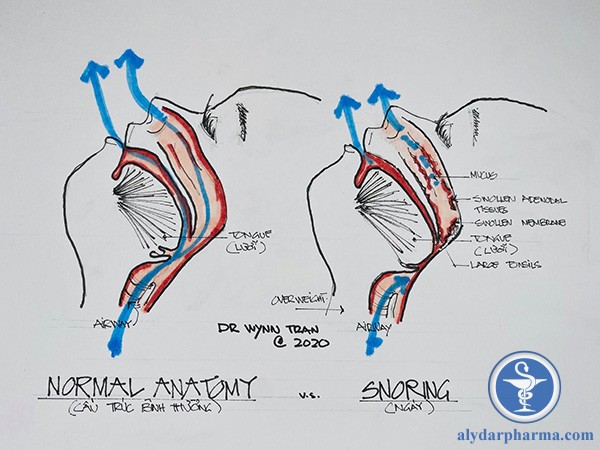 MUCUS
SWOLLEN ADENOIDAL
TISSUES
SWOLLEN MEMBRANE
TONGUE
(LƯỠI)
LARGE TONSILS
TONGUE
(LƯỠI)
OVERWEIGHT
AIRWAY
DR WYNN TRAN
@ 2020
AIRWAY
NORMAL ANATOMY
(CẤU TRÚC BÌNH THƯỜNG)
V.S.
SNORING
(NGÁY)
alydarpharma.com